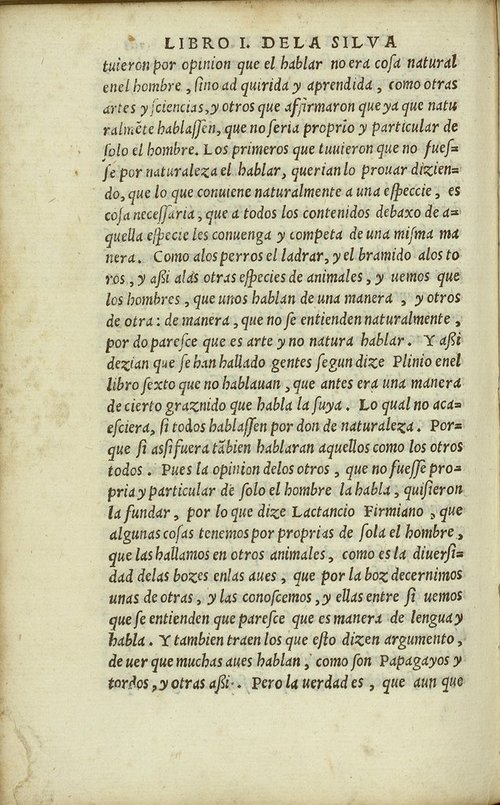 LIBRO I. DELA SILVA
tuieron por opinion que el hablar no era cosa natural
enel hombre, sino ad quirida y aprendida, como otras
artes y sciencias, y otros que affirmaron que ya que natu
ralmẽte hablassen, que no seria proprio y particular de
solo el hombre. Los primeros que tuuieron que no fues=
se por naturaleza el hablar, querian lo prouar dizien=
do, que lo que conuiene naturalmente a una especcie, es
cosa necessaria, que a todos los contenidos debaxo de a=
quella especie les conuenga y competa de una misma ma
nera. Como alos perros el ladrar, y el bramido alos to
ros, y aßi alas otras especies de animales, y uemos que
los hombres, que unos hablan de una manera, y otros
de otra: de manera, que no se entienden naturalmente,
por do paresce que es arte y no natura hablar. Y aßi
dezian que se han hallado gentes segun dize Plinio enel
libro sexto que no hablauan, que antes era una manera
de cierto graznido que habla la suya. Lo qual no aca=
esciera, si todos hablassen por don de naturaleza. Por=
que si assi fuera tãbien hablaran aquellos como los otros
todos. Pues la opinion delos otros, que no fuesse pro=
pria y particular de solo el hombre la habla, quisieron
la fundar, por lo que dize Lactancio Firmiano, que
algunas cosas tenemos por proprias de sola el hombre,
que las hallamos en otros animales, como es la diuersi=
dad delas bozes enlas aues, que por la boz decernimos
unas de otras, y las conoscemos, y ellas entre si uemos
que se entienden que paresce que es manera de lengua y
habla. Y tambien traen los que esto dizen argumento,
de uer que muchas aues hablan, como son Papagayos y
tordos, y otras aßi. Pero la verdad es, que aun que